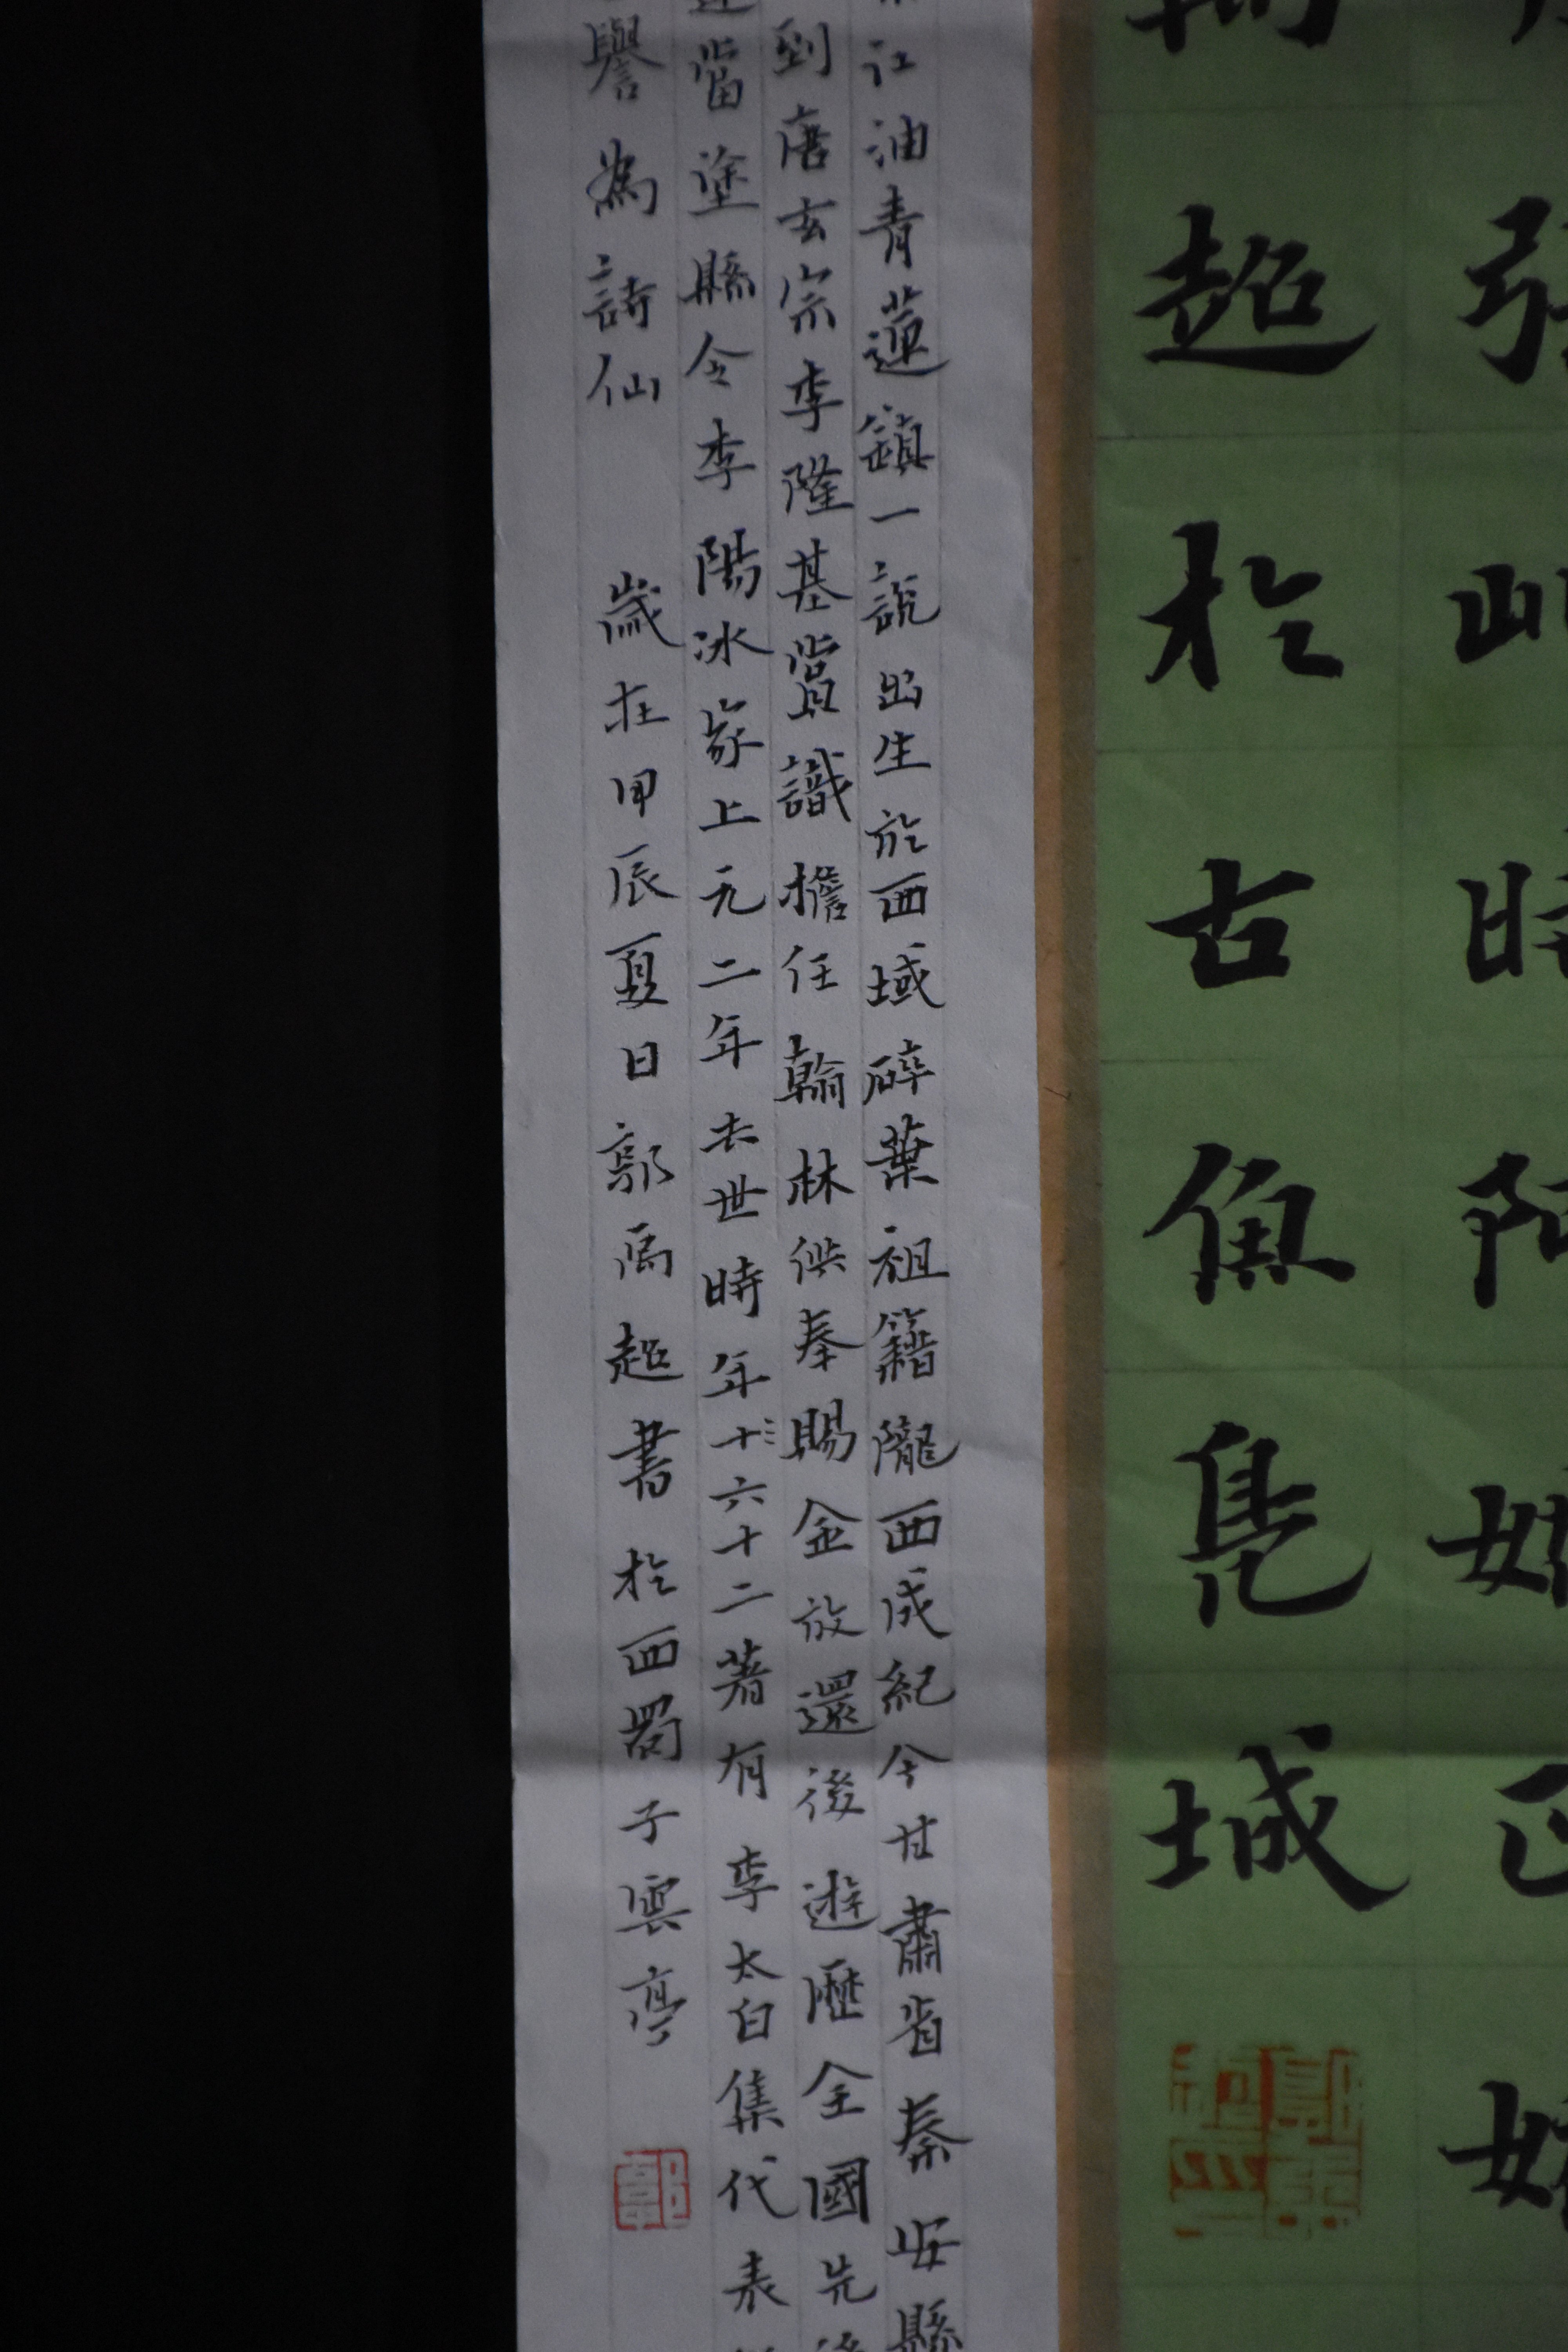 超於古魚鳧城
江油青蓮鎮一說出生於西域碎葉祖籍隴西成紀今甘肅省秦安縣
到唐玄宗李隆基賞識擔任翰林供奉賜金放還後遊歷全國先
當塗縣令李陽冰家上元二年去世時年十六十二著有李太白集代表
譽為詩仙 歲在甲辰夏日郭禹超書於西蜀子雲亭
郭